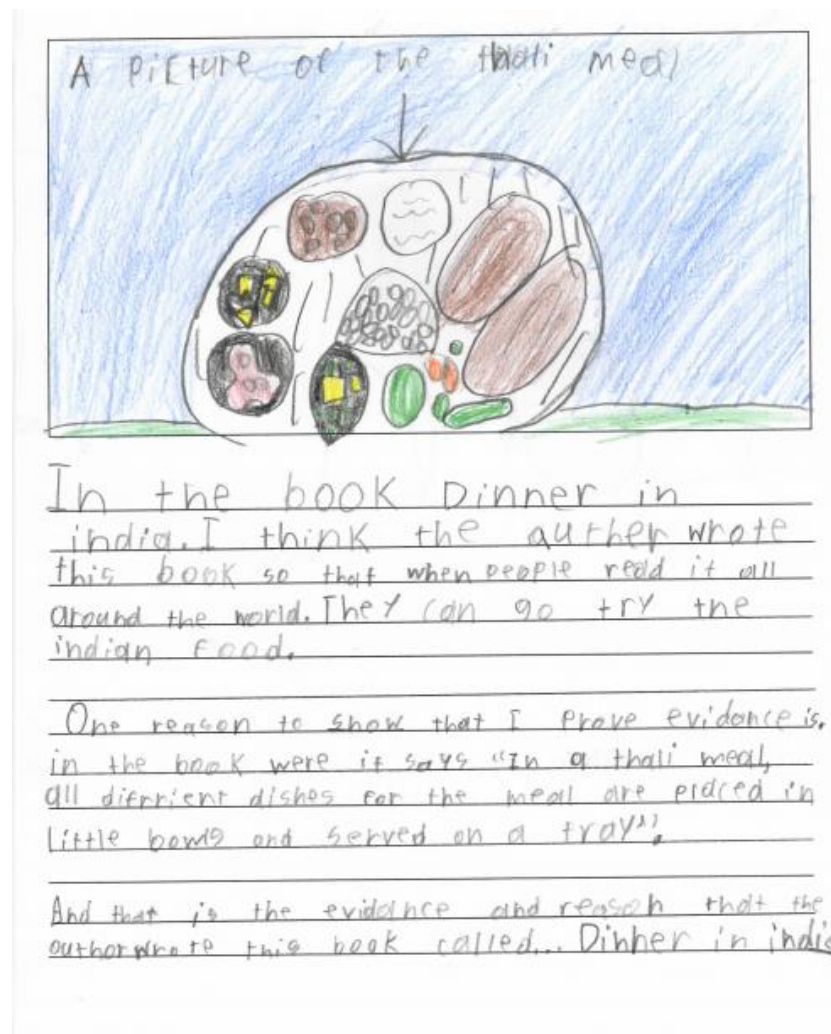 A picture of the thali meal
In the book Dinner in
india. I think the auther wrote
this book so that when people read it all
around the world. They can go try the
indian food.
One reason to show that I Prove evidance is.
in the book were it says "In a thali meal,
all diffrient dishes for the meal are placed in
little bowls and served on a tray".
And that is the evidance and reason that the
author wrote this book called... Dinner in india